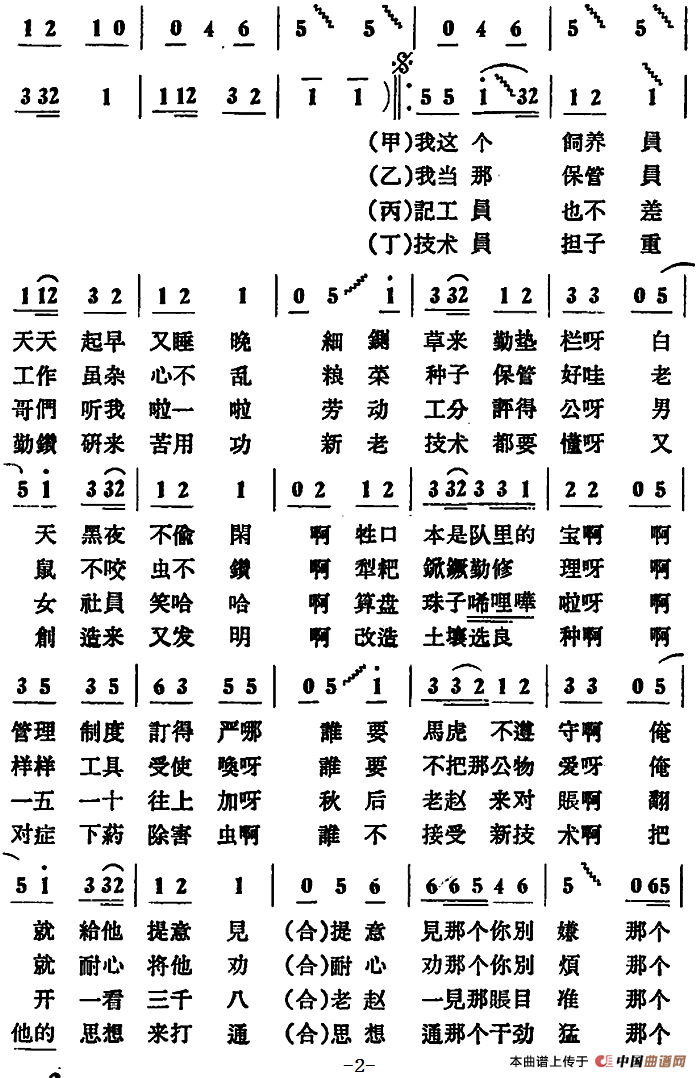 1 2 1 0 | 0 4 6 | 5 5 | 0 4 6 | 5 5
3 32 1 | 1 12 3 2 | 1 1 ) 5 5 1 32 | 1 2 1
(甲)我这个 飼养 員
(乙)我当那 保管 員
(丙)記工員 也不 差
(丁)技术員 担子 重
1 12 3 2 | 1 2 1 | 0 5 1 | 3 32 1 2 | 3 3 0 5
天天 起早 又睡 晚 細 鍘 草来 勤垫 栏呀 白
工作 虽杂 心不 乱 粮菜 种子 保管 好哇 老
哥們 听我 啦一 啦 劳动 工分 評得 公呀 男
勤鑽 研来 苦用 功 新老 技术 都要 懂呀 又
5 1 3 32 | 1 2 1 | 0 2 1 2 | 3 32 3 3 1 | 2 2 0 5
天 黑夜 不偷 閑 啊 牲口 本是队里的 宝啊 啊
鼠 不咬 虫不 鑽 啊 犁耙 鍁鐝勤修 理呀 啊
女 社員 笑哈 哈 啊 算盘 珠子唏哩嘩 啦呀 啊
創 造来 又发 明 啊 改造 土壤选良 种啊 啊
3 5 3 5 | 6 3 5 5 | 0 5 1 | 3 3 2 1 2 | 3 3 0 5
管理 制度 訂得 严哪 誰 要 馬虎 不遵 守啊 俺
样样 工具 受使 喚呀 誰 要 不把那公物 爱呀 俺
一五 一十 往上 加呀 秋 后 老赵 来对 賬啊 翻
对症 下葯 除害 虫啊 誰 不 接受 新技 术啊 把
5 1 3 32 | 1 2 1 | 0 5 6 | 6 6 5 4 6 | 5 0 65
就 給他 提意 見 (合)提 意 見那个你別 嫌 那个
就 耐心 将他 劝 (合)耐 心 劝那个你別 煩 那个
开 一看 三千 八 (合)老 赵 一見那賬目 准 那个
他的 思想 来打 通 (合)思 想 通那个干劲 猛 那个
-2-
本曲谱上传于 中国曲谱网